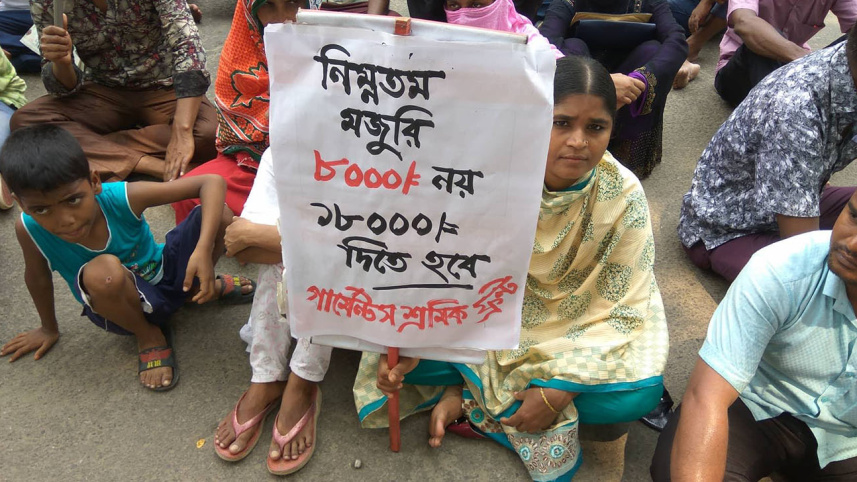 নিম্নতম
মজুরি
৮০০০/ নয়
১৮০০০/=
দিতে হবে
গার্মেন্টস শ্রমিক